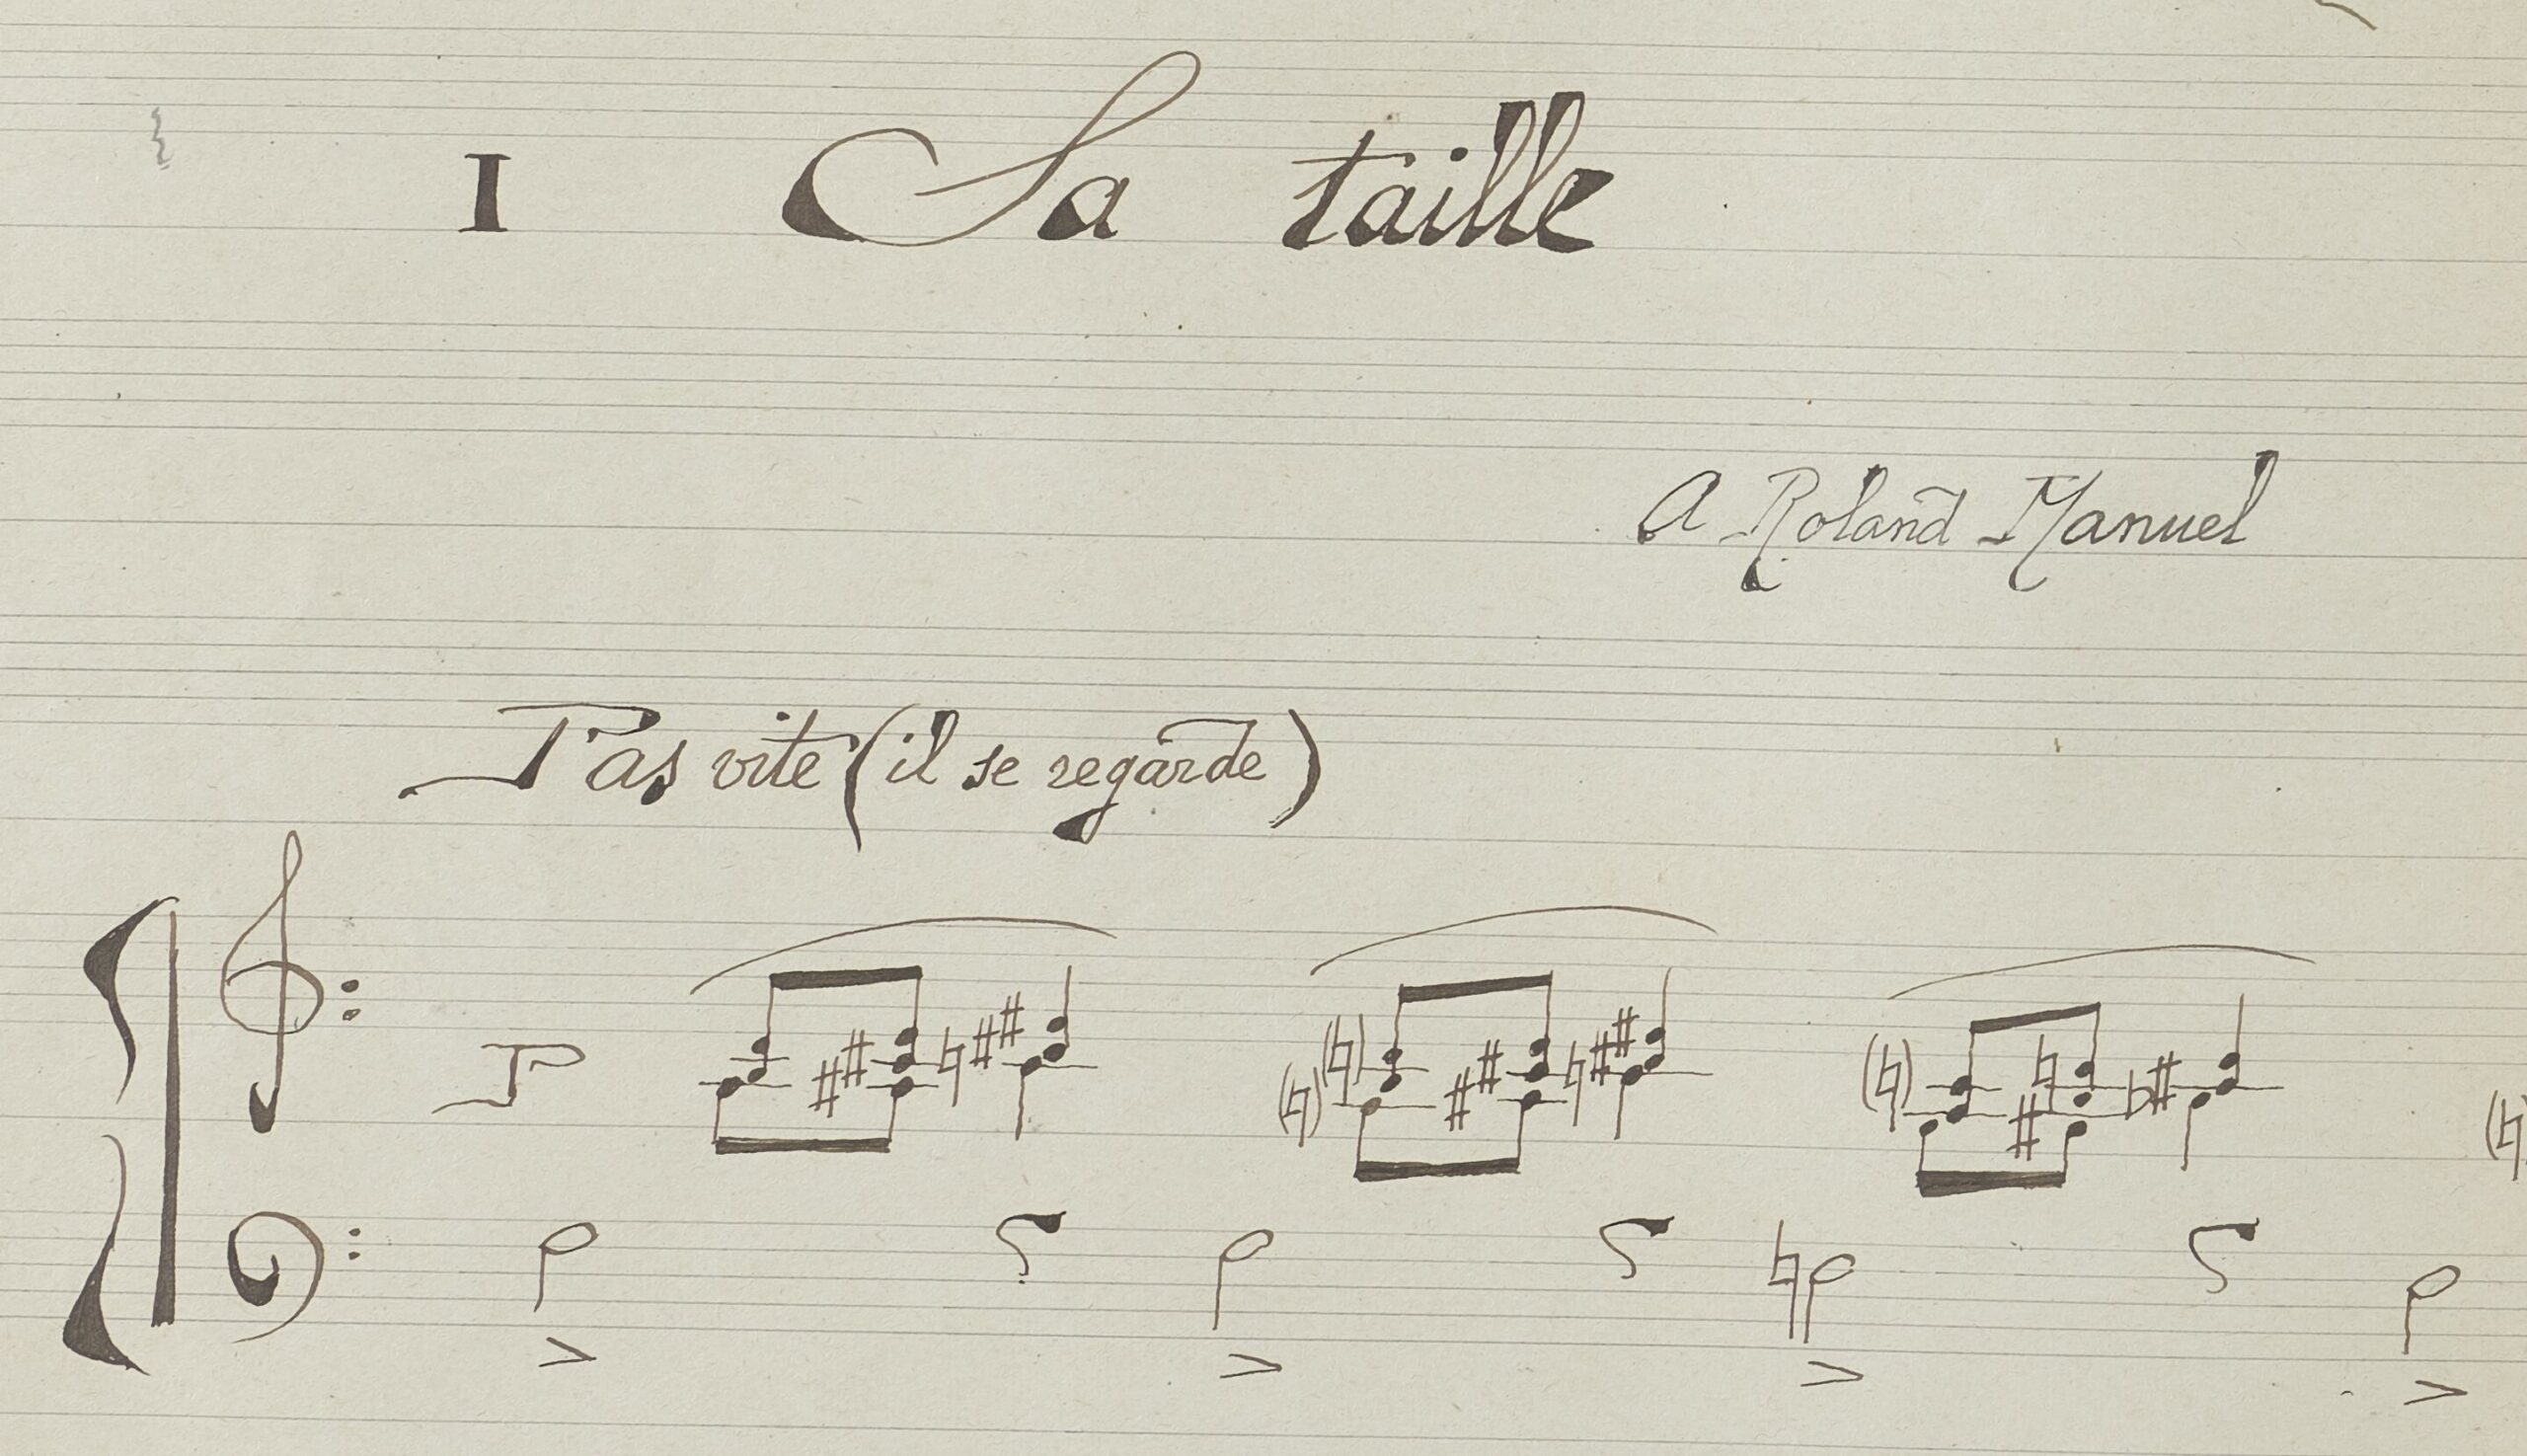 I Sa taille
A Roland Manuel
Pas vite (il se regarde)
P